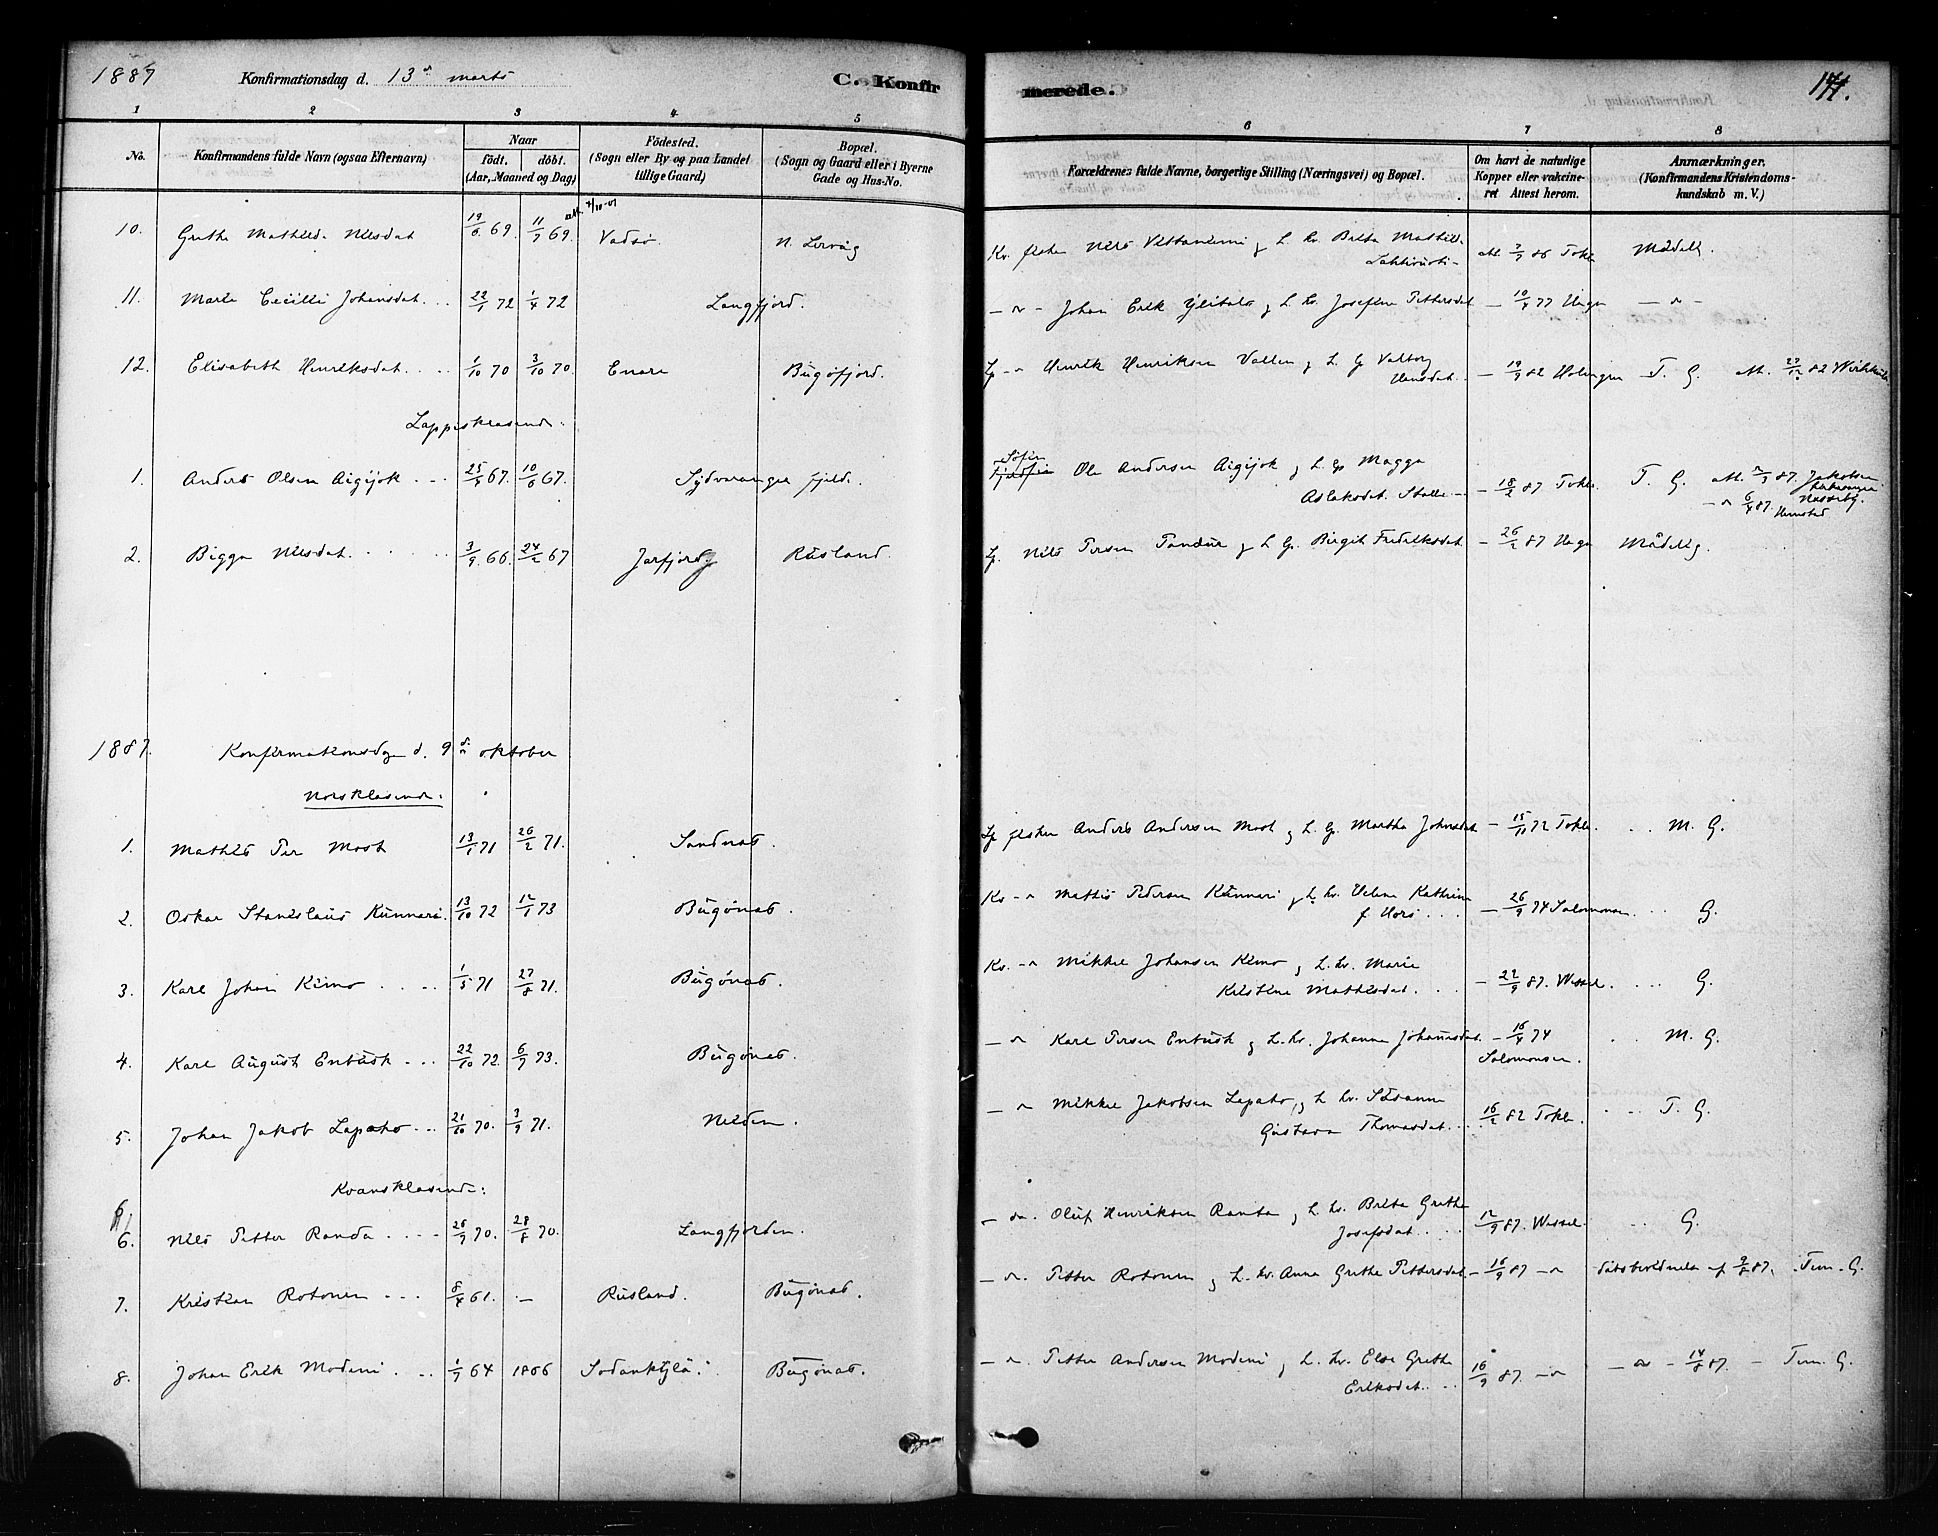 1887 Konfirmationsdag d. 13de marts C. Konfirmerede. 171.
1 2 3 4 5 6 7 8
No. Konfirmandens fulde Navn (ogsaa Efternavn) Naar født. døbt. (Aar, Maaned og Dag) Fødested. (Sogn eller By og paa Landet tillige Gaard) Bopæl. (Sogn og Gaard eller i Byerne Gade og Hus-No. Forældrenes fulde Navne, borgerlige Stilling (Næringsvei) og Bopæl. Om havt de naturlige Kopper eller vakcineret Attest herom. Anmærkninger. (Konfirmandens Kristendomskundskab m. V.)
10. Grethe Mathilda Nilsdat 19/6 69. 11/9 69. Vadsø. N. Lervåg Kv. fisker Nils Vettaniemi og h. kv. Brita Mathil. att. 7/9 86 Tokle Mådelig.
11. Marie Cecilie Johansdat. 1/4 72 Langfjord. — " — Johan Erik Ylitalo og h. kv. Josefine Pettersdat — 10/4 77 — " —
12. Elisabeth Henriksdat. 1/10 70 3/10 70. Enare Bugøfjord. Henrik Henriksen Vallen og h. Valborg Hansdat. — 19/9 82 T. G. att.
Lappisklasende:
1. Anders Olsen Aigijok 25/5 67. 10/6 67. Sydvaranger fjeld. Søfin Ole Andersen Aigijok og h. Magga Aslaksdat. — 18/2 87 Tokle. T. G. att. 2/3 87. Jakobsen
2. Bigga Nilsdat. 3/9 66 24/2 67 Jarfjord Rusland. Nils Persen og h. Birgit Fredriksdat — 26/2 87 Mådelig.
1887. Konfirmationsdag d. 9de oktober
Norsklasende:
1. Mathis Per Most 13/1 71 26/2 71. Sandnes. fisker Anders Andersen Most og h. Martha Johnsdat — 15/11 72 Tokle. M. G.
2. Oskar Stanislaus Kunnari. 13/10 72 12/1 73 Bugønes. Kv. — " Mathis Pedersen Kunnari og h. kv. Helene Kathrine f. Hors — 26/9 74 Salomonsen. G.
3. Karl Johan Kimo 1/5 71 27/8 71. Bugønes. Kv. — " Mikkel Johansen Kimo og h. kv. Marie Kristine Mathisdat. — 22/9 87. Wessel. G.
4. Karl August Entusk 22/10 72. 6/7 73. Bugønes. — " Karl Persen Entusk og h. kv. Johanna Johannesdat. — 16/4 74 Salomonsen. M. G.
5. Johan Jakob Lapaho 21/10 70. 3/9 71. Neiden. — " Mikkel Jakobsen Lapaho og h. kv. Susanna Gustava Thomasdat. 16/2 82 Tokle. T. G.
Kvænsklasende:
6. Nils Petter Randa 26/7 70. 28/8 70. Langfjorden. — " Oluf Henriksen Ranta og h. kv. Brita Grethe Josefsdat. 12/9 87. Wessel. G.
7. Kristian Rotonen 8/4 61. — Rusland. Bugønes. — ". Petter Rotonen og h. kv. Anna Grethe Pettersdat — 16/9 87 — " dåbsbevidnels af 9/8 87. Tem. G.
8. Johan Erik Modeni 1/7 64 1866 Sodankylä. Bugønes. — ". Petter Andersen Modeni og h. kv. Elsa Grethe Eriksdat. 16/9 87. — " — " — 14/8 87. — Tem. G.